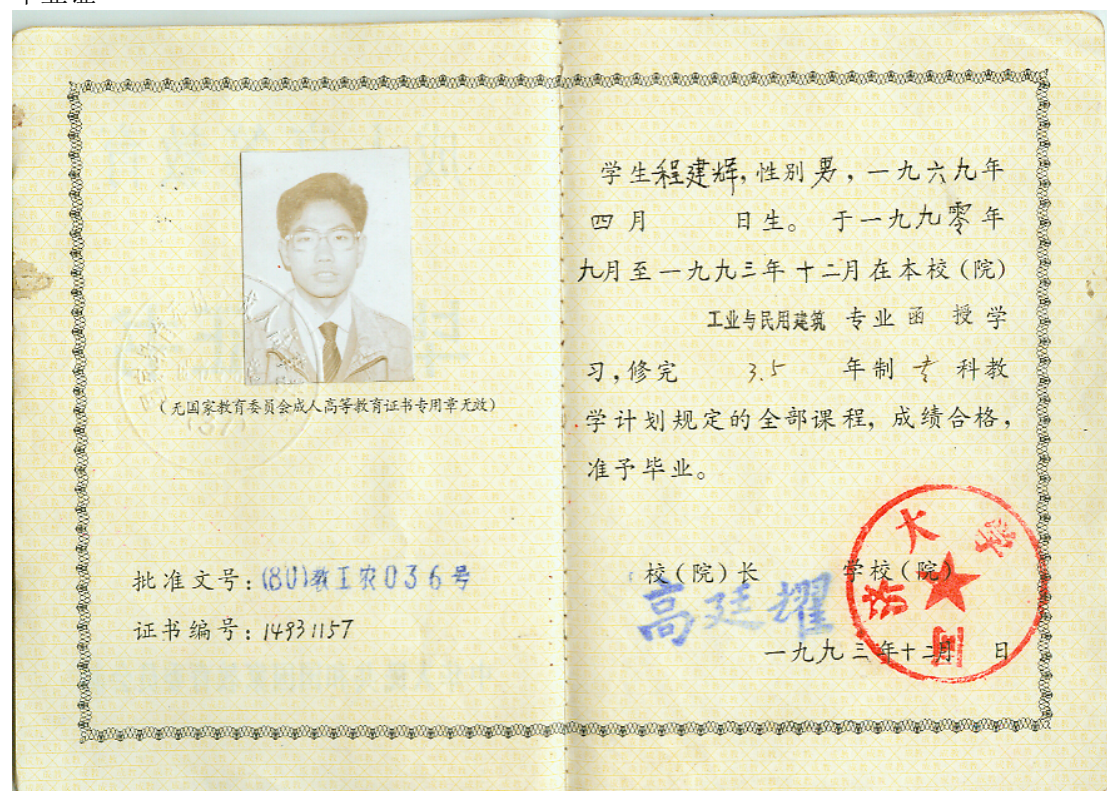 毕业证
(无国家教育委员会成人高等教育证书专用章无效)
批准文号:(80)教工农036号
证书编号:14931157
学生程建辉,性别男,一九六九年
四月 日生。于一九九零年
九月至一九九三年十二月在本校(院)
工业与民用建筑 专业函授学
习,修完 3.5 年制专科教
学计划规定的全部课程,成绩合格,
准予毕业。
校(院)长 学校(院)
高廷耀
一九九三年十二月 日
同济大学